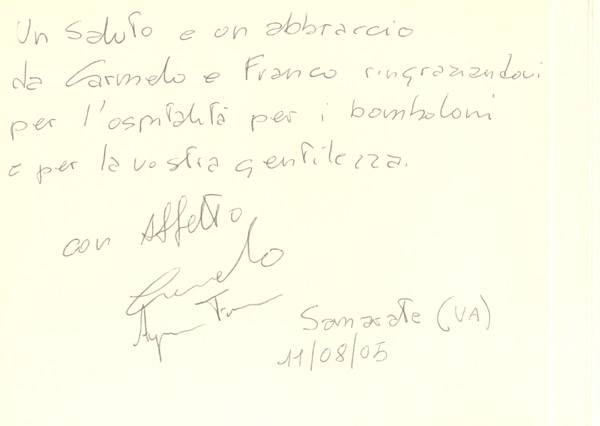 Un saluto e un abbraccio
da Carmelo e Franco ringraziandovi
per l'ospitalità per i bomboloni
e per la vostra gentilezza.
con Affetto
Carmelo
Samarate (VA)
11/08/05